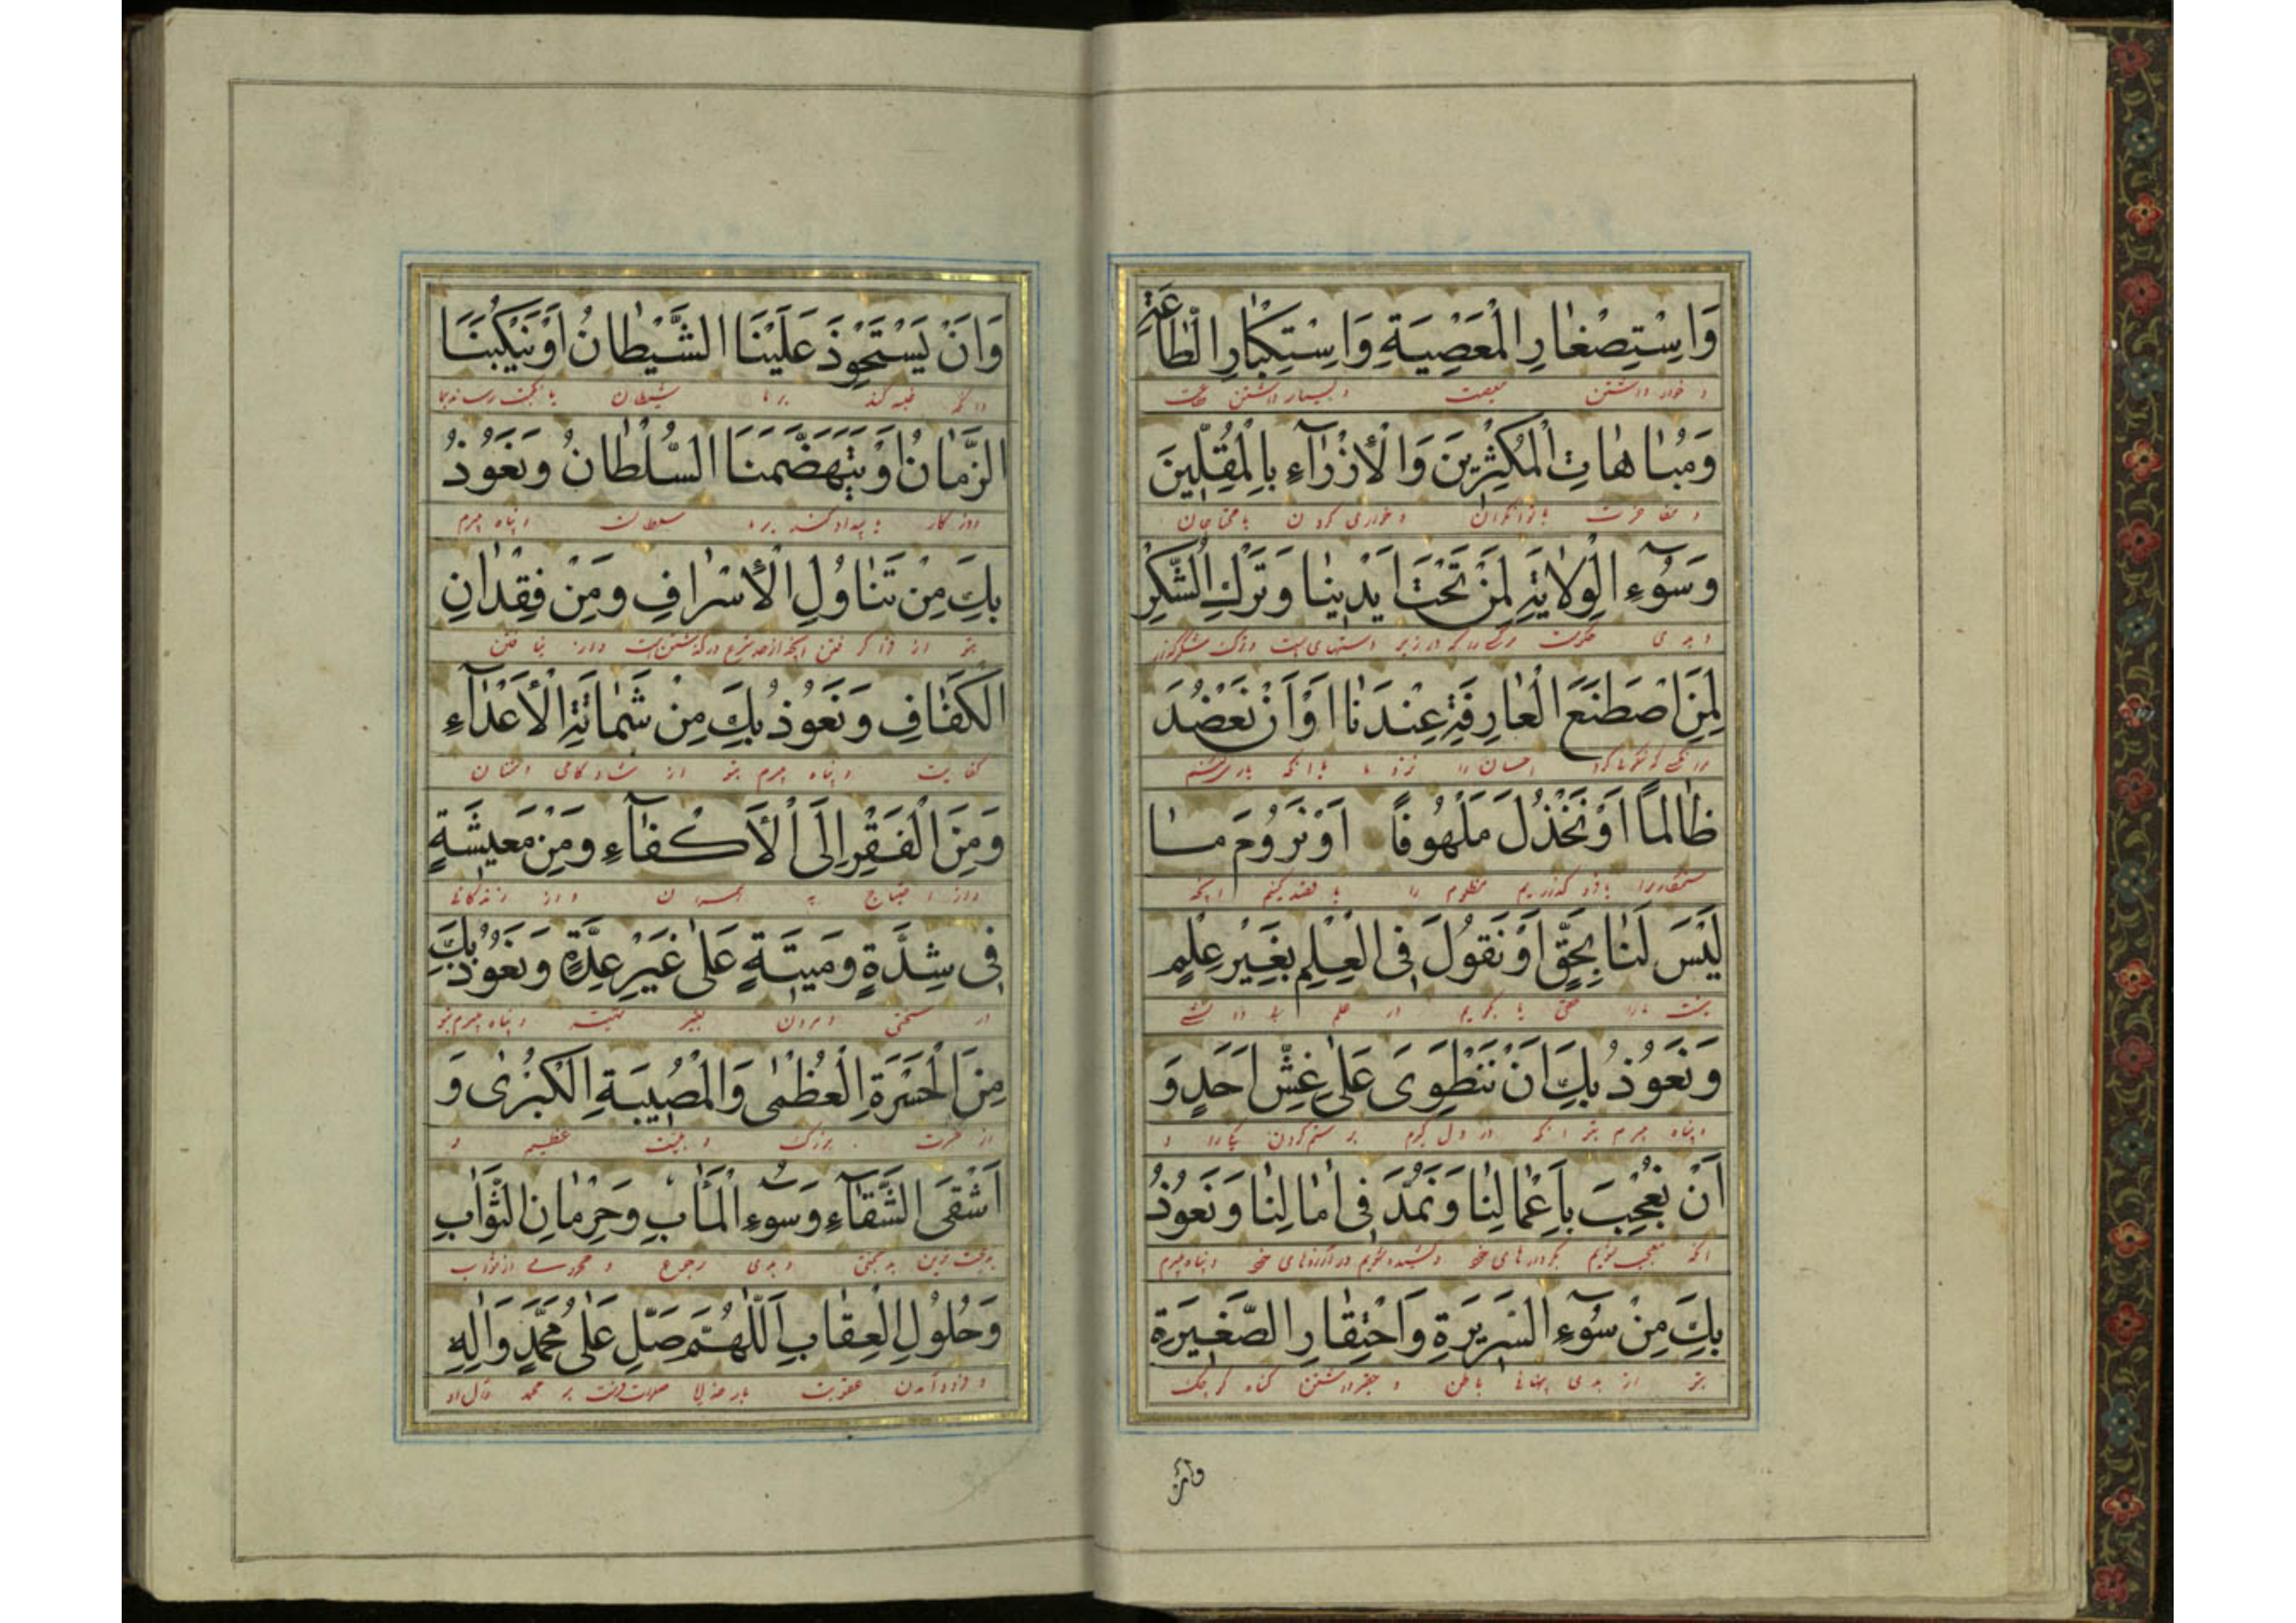 وَاسْتِصْغارِ الْمَعْصِيَةِ وَاسْتِكْبارِ الْطّاعَةِ
و خوار داشتن معصیت و بسیار داشتن طاعت
وَمُباهاتِ الْمُكْثِرينَ وَالْأِزْرآءِ بِالْمُقِلّينَ
و مفاخرت با توانگران و خواری کردن با محتاجان
وَسُوۤءِ الْوِلايَةِ لِمَنْ تَحْتَ اَيْدينا وَتَرْكِ الشُّكْرِ
و بدی حکومت در زیر دستهای و ترک شکرگزار
لِمَنِ اصْطَنَعَ الْعارِفَةَ عِنْدَنا اَوْ اَنْ نَعْضُدَ
احسان را نزد ما یا آنکه یاری
ظالِماً اَوْ نَخْذُلَ مَلْهُوفاً اَوْ نَرُومَ ما
ستمکار را یا فرو گذاریم مظلوم را یا قصد کنیم آنچه
لَيْسَ لَنا بِحَقٍّ اَوْ نَقُولَ فِى الْعِلْمِ بِغَيْرِ عِلْمٍ
نیست ما را حق یا بگوییم در علم
وَنَعُوذُ بِكَ اَنْ نَنْطَوِىَ عَلى غِشِّ اَحَدٍ وَ
و پناه بریم بتو آنکه در دل بر ستم کردن و
اَنْ نُعْجِبَ بِاَعْمالِنا وَنَمُدَّ فى اٰمالِنا وَنَعُوذُ
آنکه معجب شویم بکردارهای خود در آرزوهای خود و پناه بریم
بِكَ مِنْ سُوۤءِ السَّريرَةِ وَاحْتِقارِ الصَّغيرَةِ
بتو از بدی باطن و حقیر داشتن گناه کوچک
وان
وَاَنْ يَسْتَحْوِذَ عَلَيْنَا الشَّيْطانُ اَوْ يَنْكُبَنَا
و آنکه غلبه کند بر ما شیطان یا نکبت رساند بما
الزَّمانُ اَوْ يَتَهَضَّمَنَا السُّلْطانُ وَنَعُوذُ
روزگار یا بیداد کند بر ما سلطان و پناه بریم
بِكَ مِنْ تَناوُلِ الْأِسْرافِ وَمِنْ فِقْدانِ
بتو از فرا گرفتن آنچه از حد شرع درگذشتن است و از نایافتن
الْكَفافِ وَنَعُوذُ بِكَ مِنْ شَماتَةِ الْأَعْدآءِ
کفایت و پناه بریم بتو از شادکامی دشمنان
وَمِنَ الْفَقْرِ اِلَى الْأَكْفآءِ وَمِنْ مَعيشَةٍ
و از احتیاج به همسران و از زندگانی
فى شِدَّةٍ وَميتَةٍ عَلى غَيْرِ عِدَّةٍ وَنَعُوذُ بِكَ
در سختی و مردن بغیر تهیه و پناه بریم بتو
مِنَ الْحَسْرَةِ الْعُظْمى وَالْمُصيبَةِ الْكُبْرى وَ
از حسرت بزرگ و مصیبت عظیم و
اَشْقَى الشَّقآءِ وَسُوۤءِ الْمَاٰبِ وَحِرْمانِ الثَّوابِ
بدبخت ترین بدبختی و بدی رجوع و محرومی از ثواب
وَحُلُولِ الْعِقابِ اَللّٰهُمَّ صَلِّ عَلى مُحَمَّدٍ وَاٰلِهِ
و فرود آمدن عقوبت بار خدایا صلوات فرست بر محمد و آل او